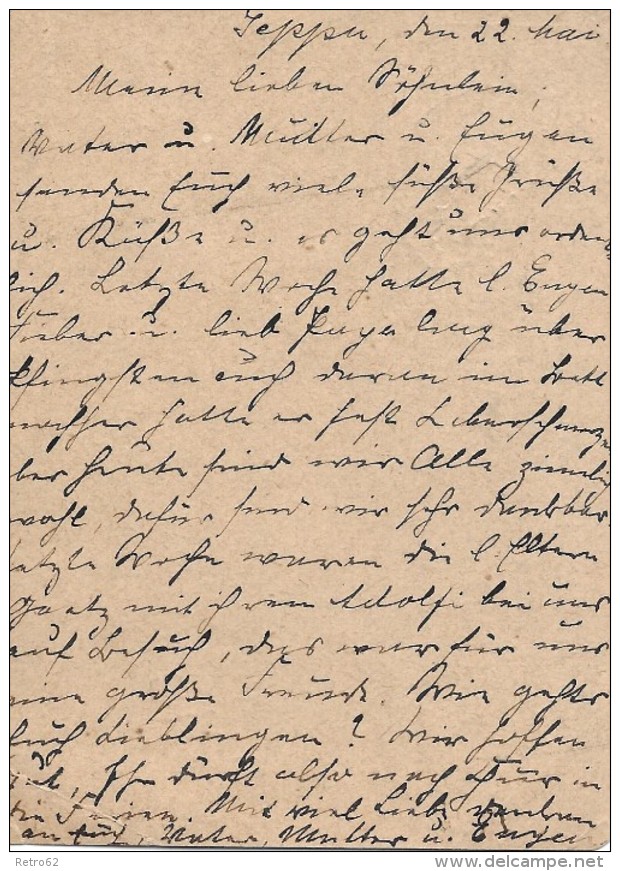 Jeppu, den 22. Mai
Meine lieben Söhnlein,
Vater u. Mutter u. Eugen
senden Euch viele süße Grüße
u. Küße u. es geht uns ordent
lich. Letzte Woche hatte l. Eugen
Fieber u. lieb Papa lag über
Pfingsten auch daran im Bett
nachher hatte er fest Leberschmerzen
ber heute sind wir Alle ziemlich
wohl, dafür sind wir sehr dankbar.
letzte Woche waren die l. Eltern
Goetz mit ihrem Adolf bei uns
auf Besuch, das war für uns
eine große Freude. Wie gehts
Euch Lieblingen? Wir hoffen
gut, Ihr dürft also nach Chur in
die Ferien. Mit viel Liebe denken
an Euch, Vater, Mutter u. Eugen
Retro62